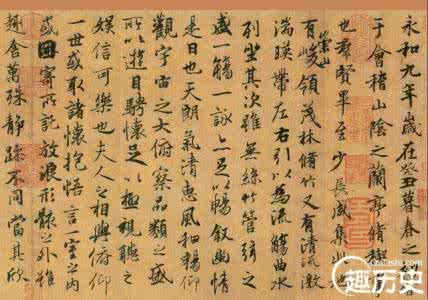 永和九年歲在癸丑暮春之
于會稽山陰之蘭亭脩
也羣賢畢至少長咸集
崇山
有峻領茂林脩竹又有清流激
湍暎帶左右引以為流觴曲水
列坐其次雖無絲竹管弦之
盛一觴一詠亦足以暢敘幽情
是日也天朗氣清惠風和暢仰
觀宇宙之大俯察品類之盛
所以遊目騁懷足以極視聽之
娛信可樂也夫人之相與俯仰
一世或取諸懷抱悟言一室之內
或因寄所託放浪形骸之外雖
趣舍萬殊靜躁不同當其欣
趣历史